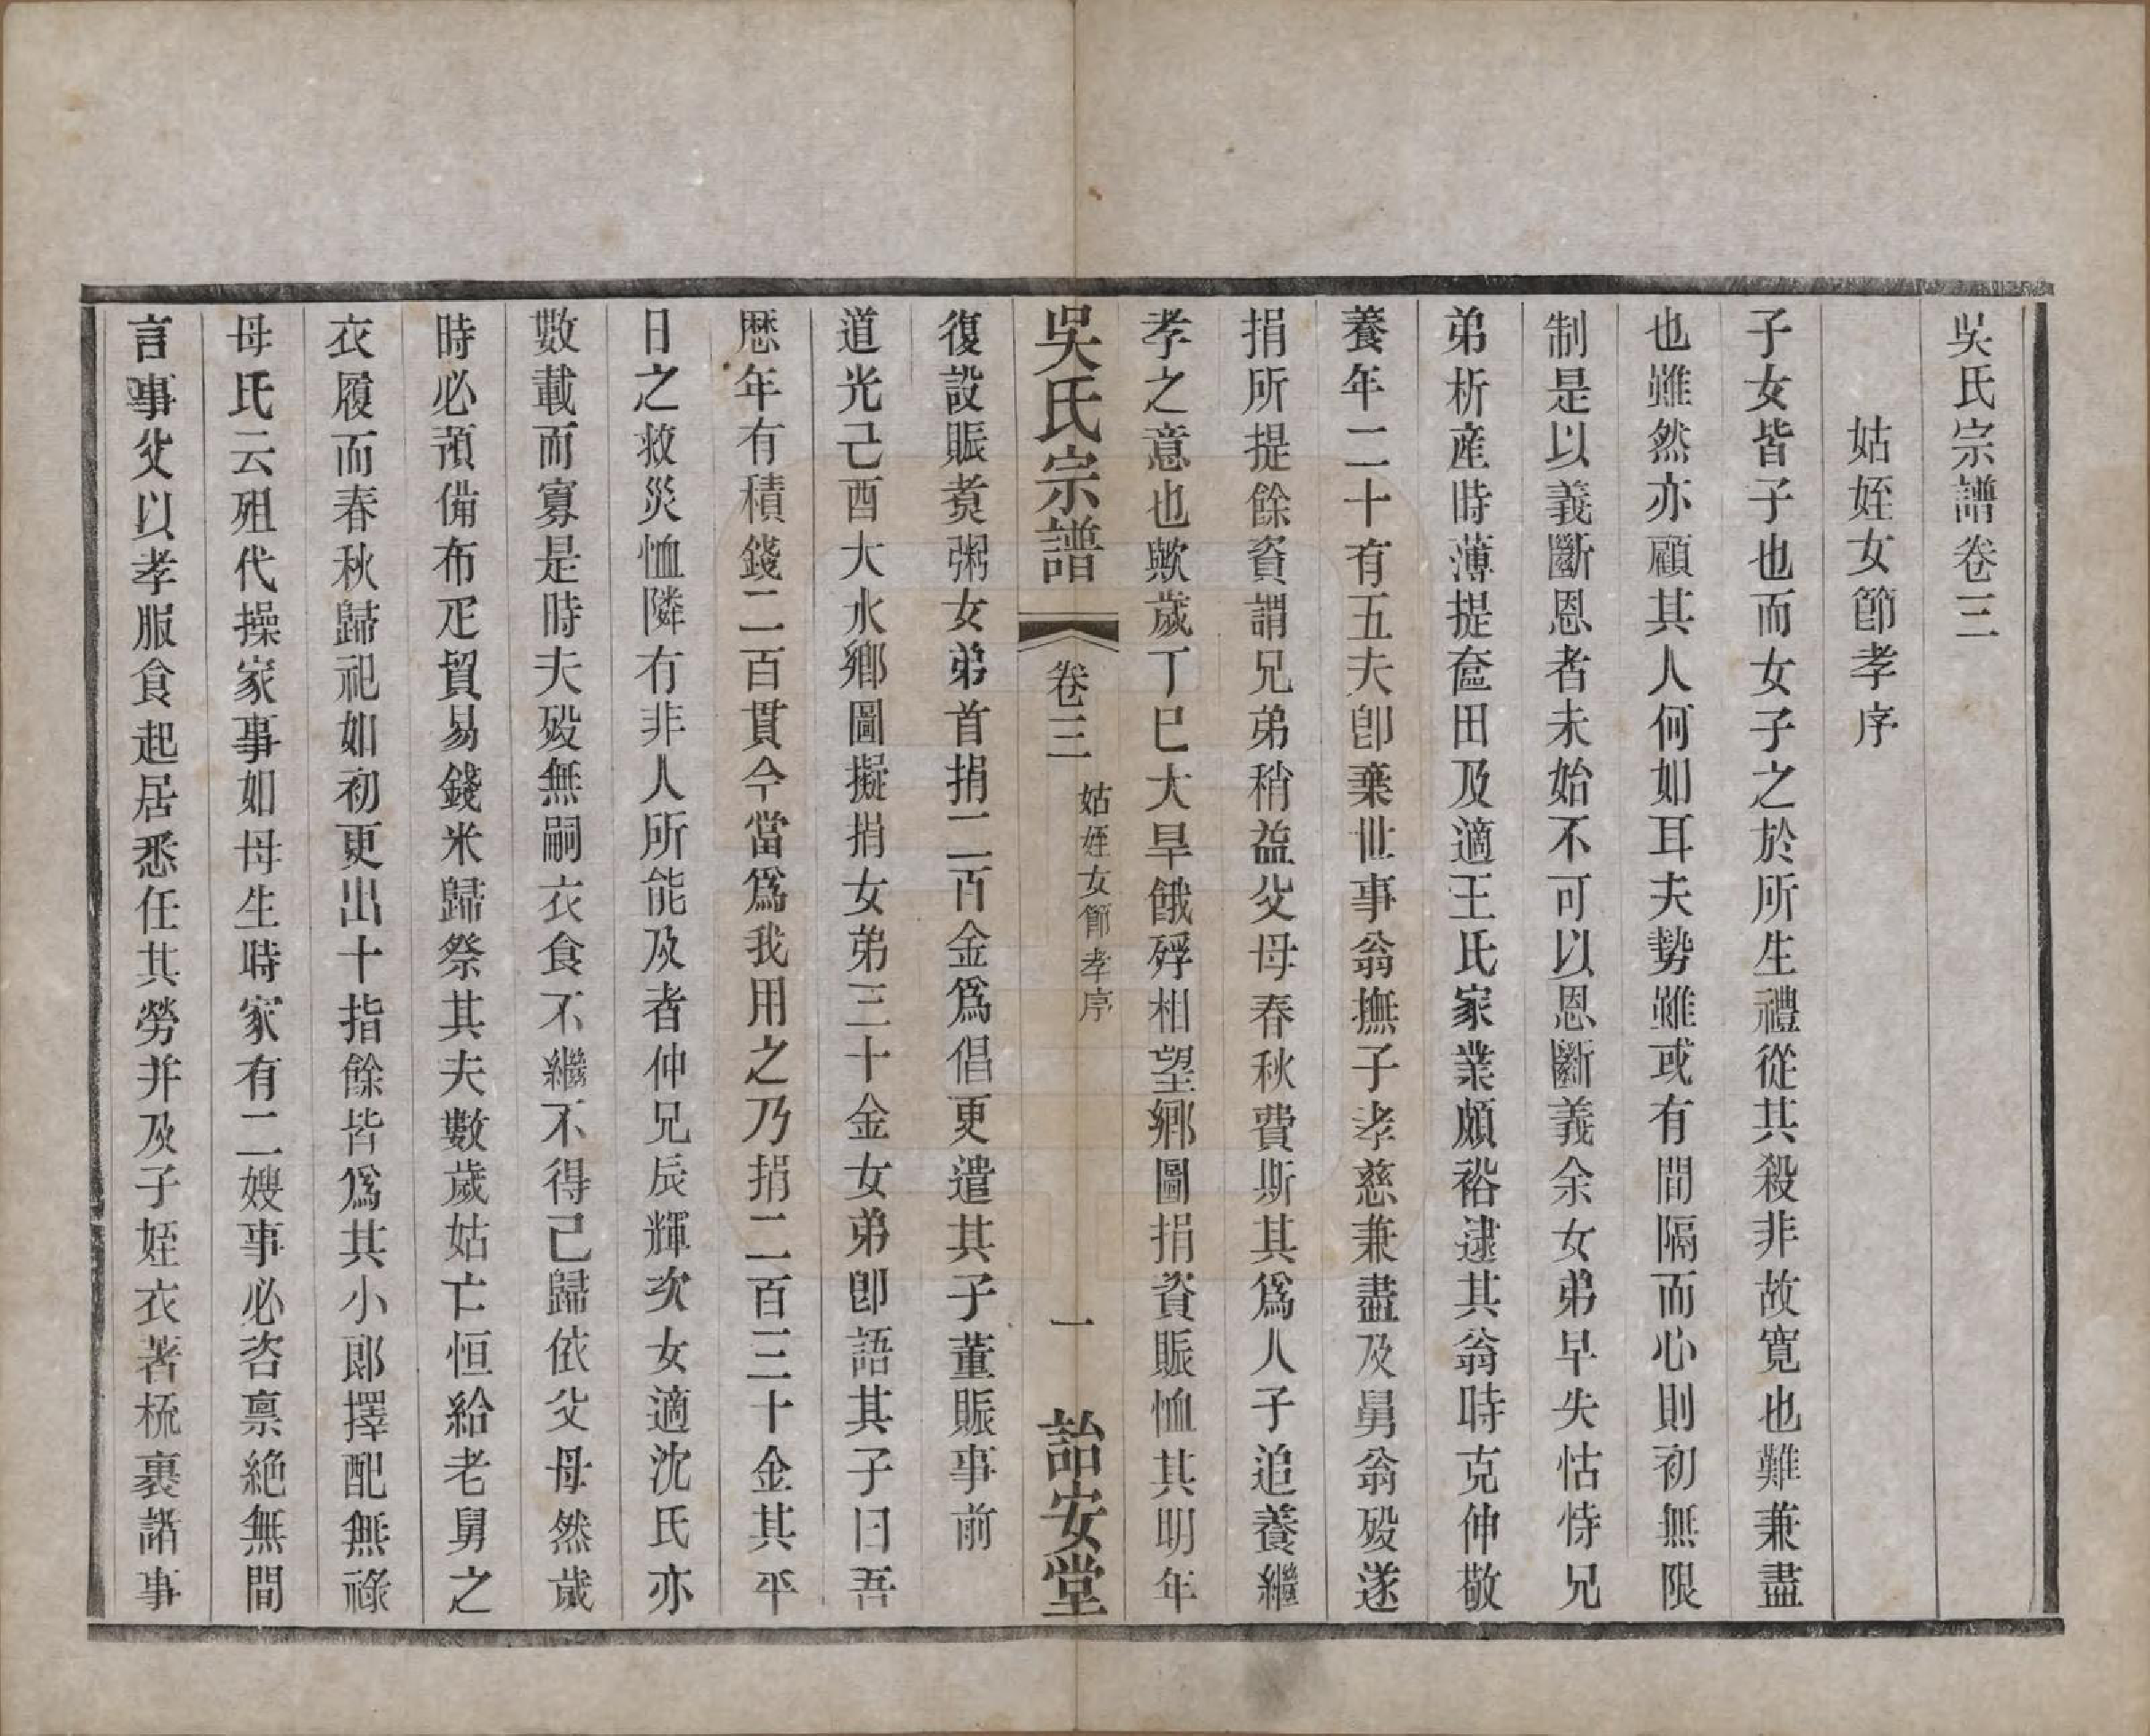 吳氏宗譜卷三
姑姪女節孝序
子女皆子也而女子之於所生禮從其殺非故寬也難兼盡
也雖然亦顧其人何如耳夫勢雖或有間隔而心則初無限
制是以義斷恩者未始不可以恩斷義余女弟早失怙恃兄
弟析産時薄提奩田及適王氏家業頗裕逮其翁時克伸敬
養年二十有五夫卽棄世事翁撫子孝慈兼盡及舅翁歿遂
捐所提餘資謂兄弟稍益父母春秋費斯其爲人子追養繼
孝之意也歟歲丁巳大旱餓殍相望鄉圖捐資賑恤其明年
吳氏宗譜
卷三
姑姪女節孝序
一
詒安堂
復設賑煑粥女弟首捐二百金爲倡更遣其子董賑事前
道光己酉大水鄉圖擬捐女弟三十金女弟卽語其子曰吾
歷年有積錢二百貫今當爲我用之乃捐二百三十金其平
日之救災恤隣有非人所能及者仲兄辰輝次女適沈氏亦
數載而寡是時夫歿無嗣衣食不繼不得已歸依父母然歲
時必預備布疋貿易錢米歸祭其夫數歲姑亡恒給老舅之
衣履而春秋歸祀如初更出十指餘皆爲其小郎擇配無祿
母氏云殂代操家事如母生時家有二嫂事必咨稟絶無間
言事父以孝服食起居悉任其勞并及子姪衣著梳裹諸事